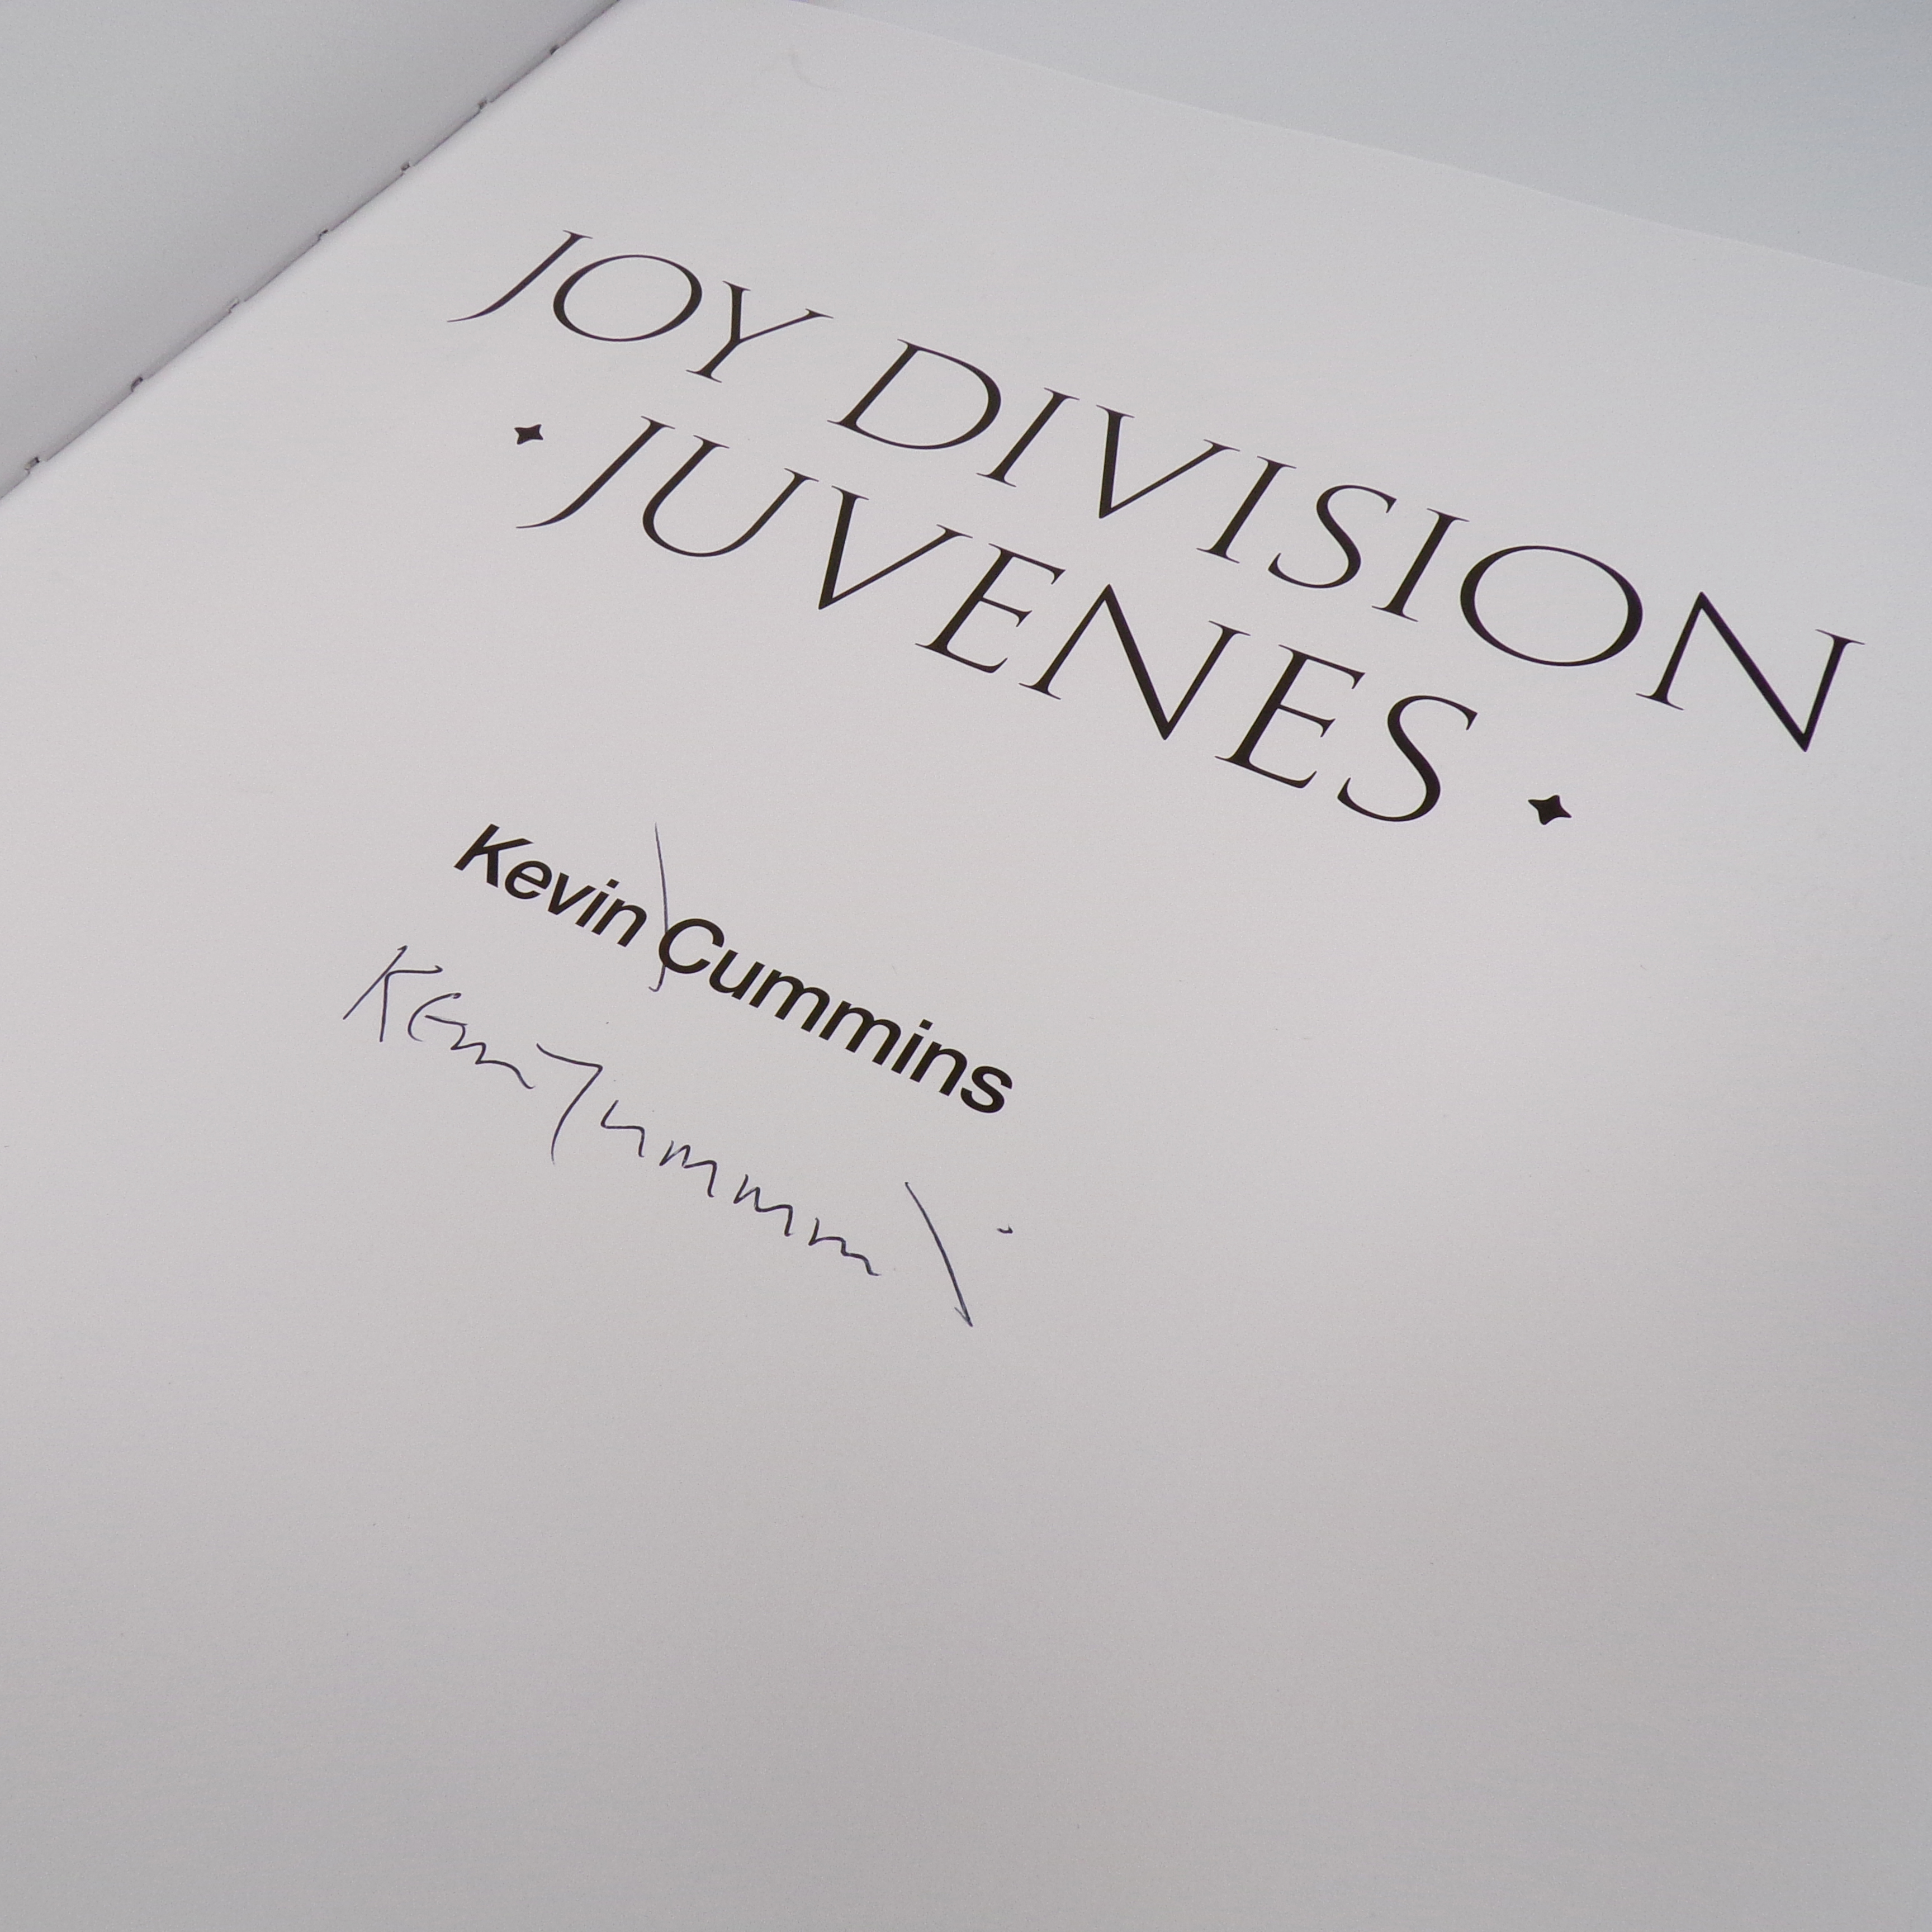 JOY DIVISION
✦ JUVENES ✦
Kevin Cummins
Kevin Cummins